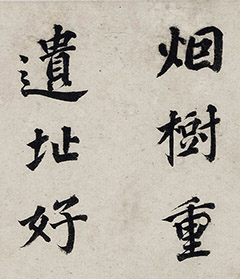 烟樹重
遺址好